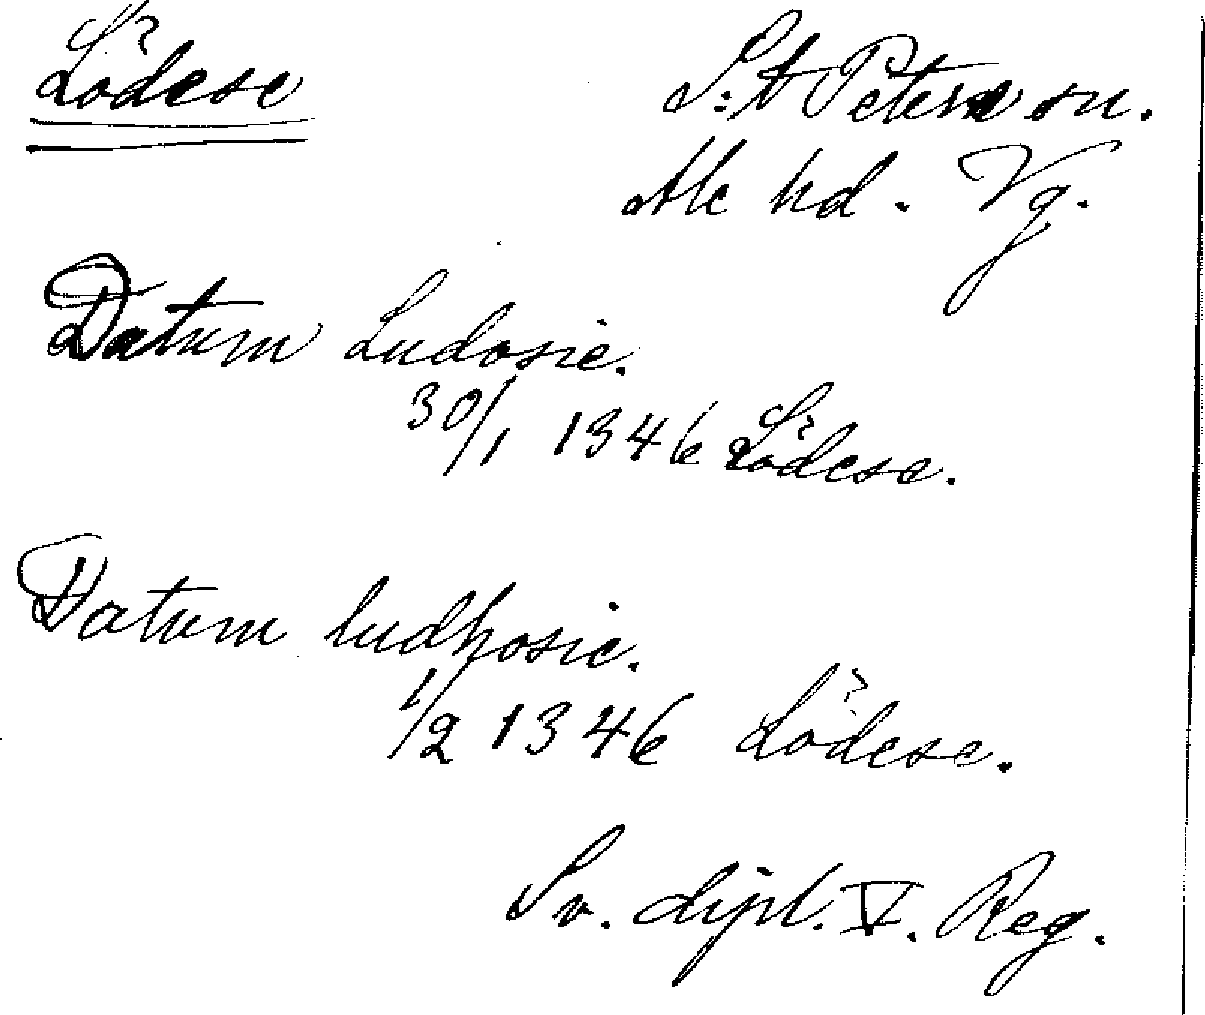 Lödese S:t Peters sn.
Ale hd. Vg.
Datum Ludosie.
30/1 1346 Lödese.
Datum ludhosie.
1/2 1346 Lödese.
Sv. dipl. V. Reg.